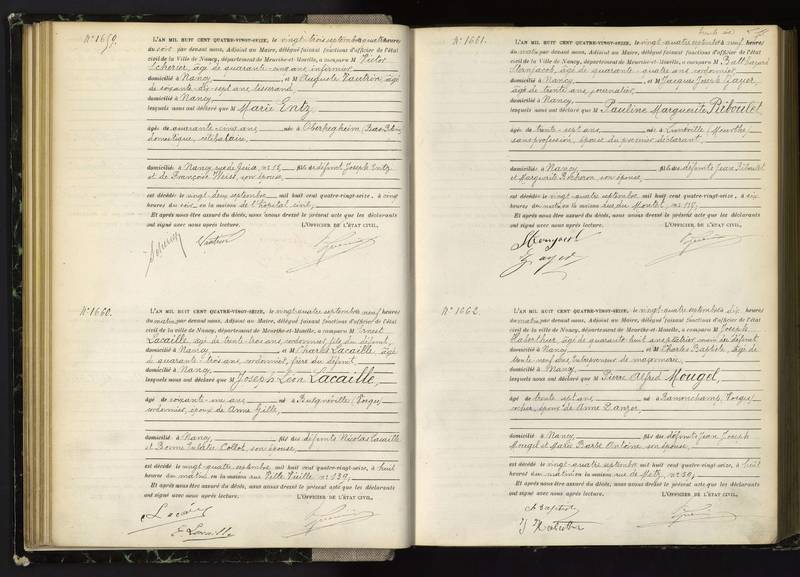 N° 1659.
L'AN MIL HUIT CENT QUATRE-VINGT-SEIZE, le vingt-trois septembre quatre heures
du soir par devant nous, Adjoint au Maire, délégué faisant fonctions d'officier de l'état
civil de la Ville de Nancy, département de Meurthe-et-Moselle, a comparu M Victor
Scherrer, âgé de quarante-cinq ans, infirmier
domicilié à Nancy et M Auguste Vautrin, âgé
de soixante-dix-sept ans, tisserand
domicilié à Nancy
lesquels nous ont déclaré que M Marie Entz
âgée de quarante-cinq ans née à Oberhegheim (Bas-Rhin)
domestique, célibataire,
domiciliée à Nancy, rue de Jéricho, n° 12, fille des défunts Joseph Entz
et de Françoise Weiss, son épouse
est décédée le vingt-deux septembre mil huit cent quatre-vingt-seize, à cinq
heures du soir en la maison de l'hôpital civil,
Et après nous être assuré du décès, nous avons dressé le présent acte que les déclarants
ont signé avec nous après lecture. L'OFFICIER DE L'ÉTAT CIVIL,
Vautrin
N° 1660.
L'AN MIL HUIT CENT QUATRE-VINGT-SEIZE, le vingt-quatre septembre neuf heures
du matin par devant nous, Adjoint au Maire, délégué faisant fonctions d'officier de l'état
civil de la ville de Nancy, département de Meurthe-et-Moselle, a comparu M Ernest
Lacaille, âgé de trente trois ans, cordonnier, fils du défunt,
domicilié à Nancy et M Charles Lacaille, âgé
de quarante-trois ans, cordonnier, frère du défunt,
domicilié à Nancy
lesquels nous ont déclaré que M Joseph Léon Lacaille,
âgé de soixante-un ans né à Bulgnéville (Vosges)
cordonnier, époux de Anne Gille,
domicilié à Nancy, fils des défunts Nicolas Lacaille
et Bonne Eulalie Collot, son épouse,
est décédé le vingt-quatre septembre mil huit cent quatre-vingt-seize, à huit
heures du matin en la maison rue Ville Vieille n° 139,
Et après nous être assuré du décès, nous avons dressé le présent acte que les déclarants
ont signé avec nous après lecture. L'OFFICIER DE L'ÉTAT CIVIL,
E. Lacaille
N° 1661.
L'AN MIL HUIT CENT QUATRE-VINGT-SEIZE, le vingt-quatre septembre neuf heures
du matin par devant nous, Adjoint au Maire, délégué faisant fonctions d'officier de l'état
civil de la Ville de Nancy, département de Meurthe-et-Moselle, a comparu M Balthazard
Sternjacob, âgé de quarante-quatre ans, cordonnier
domicilié à Nancy et M Jacques Joseph Gayer,
âgé de trente ans, journalier,
domicilié à Nancy
lesquels nous ont déclaré que M Pauline Marguerite Riboulet
âgée de trente-sept ans, née à Lunéville (Meurthe)
sans profession, épouse du premier déclarant,
domiciliée à Nancy, fille des défunts Jean Riboulet
et Marguerite Bocheron, son épouse,
est décédée le vingt-quatre septembre mil huit cent quatre-vingt-seize, à six
heures du matin en la maison rue du Montet, n° 115,
Et après nous être assuré du décès, nous avons dressé le présent acte que les déclarants
ont signé avec nous après lecture. L'OFFICIER DE L'ÉTAT CIVIL,
Gayer
N° 1662.
L'AN MIL HUIT CENT QUATRE-VINGT-SEIZE, le vingt-quatre septembre dix heures
du matin par devant nous, Adjoint au Maire, délégué faisant fonctions d'officier de l'état
civil de la ville de Nancy, département de Meurthe-et-Moselle, a comparu M Joseph
Haberthur, âgé de quarante huit ans,
domicilié à Nancy et M Charles Baptiste, âgé de
trente neuf ans, entrepreneur de maçonnerie,
domicilié à Nancy,
lesquels nous ont déclaré que M Pierre Alfred Mougel,
âgé de trente sept ans, né à Ramonchamp (Vosges)
cocher, époux de Anne Danzer,
domicilié à Nancy, fils des défunts Jean Joseph
Mougel et Marie Barbe Antoine, son épouse,
est décédé le vingt-quatre septembre mil huit cent quatre-vingt-seize, à huit
heures du matin en la maison rue de Metz, n° 50,
Et après nous être assuré du décès, nous avons dressé le présent acte que les déclarants
ont signé avec nous après lecture. L'OFFICIER DE L'ÉTAT CIVIL,